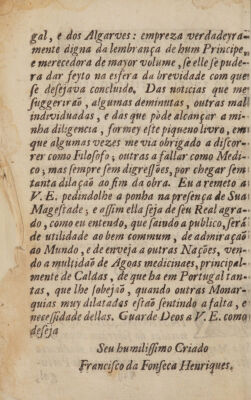 gal, e dos Algarves: empreza verdadeyra-
mente digna da lembrança de hum Principe,
e merecedora de mayor volume, se elle se pude-
ra dar feyto na esfera da brevidade com que
se desejava concluido. Das noticias que me
suggerìraõ, algumas deminutas, outras mal
individuadas, e das que pòde alcançar a mi-
nha diligencia, formey este piqueno livro, em
que algumas vezes me via obrigado a discor-
rer como Filosofo, outras a fallar como Medi-
co, mas sempre sem digressoẽs, por chegar sem
tanta dilaçaõ ao fim da obra. Eu a remeto a
V. E. pedindolhe a ponha na presença de Sua
Magestade; e assim ella seja de seu Real agra-
do, como eu entendo, que saindo a publico, serà
de utilidade ao bem commum, de admiraçaõ
ao Mundo, e de enveja a outras Naçoẽs, ven-
do a multidaõ de Agoas medicinaes, principal-
mente de Caldas, de que ha em Portugal tan-
tas, que lhe sobejaõ, quando outras Monar-
quias muy dilatadas estaõ sentindo a falta, e
necessidade dellas. Guarde Deos a V. E. como
deseja
Seu humilissimo Criado
Francisco da Fonseca Henriques.